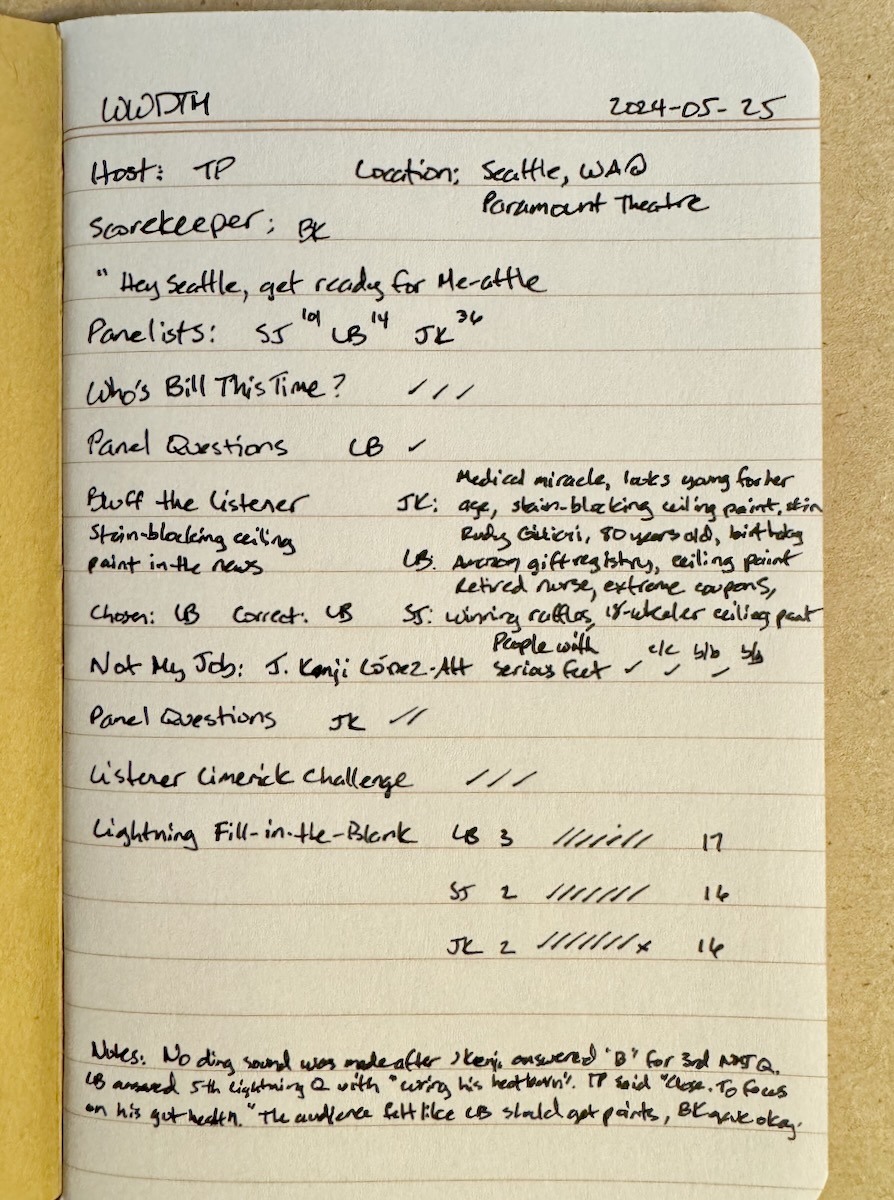 WWDTM 2024-05-25
Host: TP Location: Seattle, WA@
Paramount Theatre
Scorekeeper: BK
" Hey Seattle, get ready for Me-attle
Panelists: SJ 101 LB 14 JK 36
Who's Bill This Time? ✓ ✓ ✓
Panel Questions LB ✓
Bluff the Listener JK: Medical miracle, looks young for her
age, stain-blocking ceiling paint, skin
Stain-blocking ceiling
paint in the news
LB: Rudy Giuliani, 80 years old, birthday
Amazon gift registry, ceiling paint
Chosen: LB Correct: LB SJ: Retired nurse, extreme coupons,
winning raffles, 18-wheeler ceiling paint
Not My Job: J. Kenji López-Alt People with
serious feet ✓ c/c ✓ b/b ✓ b/b
Panel Questions JK //
Listener Limerick Challenge ///
Lightning Fill-in-the-Blank LB 3 /////// 17
SJ 2 /////// 16
JK 2 ///////x 16
Notes: No ding sound was made after JKenji answered "B" for 3rd NMJ Q.
LB answered 5th Lightning Q with "curing his heartburn". TP said "Close. To focus
on his gut health." The audience felt like LB should get points, BK gave okay.